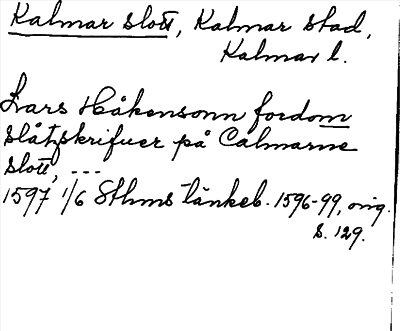 Kalmar slott, Kalmar stad,
Kalmar l.
Lars Håkensonn fordom
slåtzskrifuer på Calmarne
slott, ...
1597 1/6 Sthms tänkeb. 1596-99, orig.
s. 129.